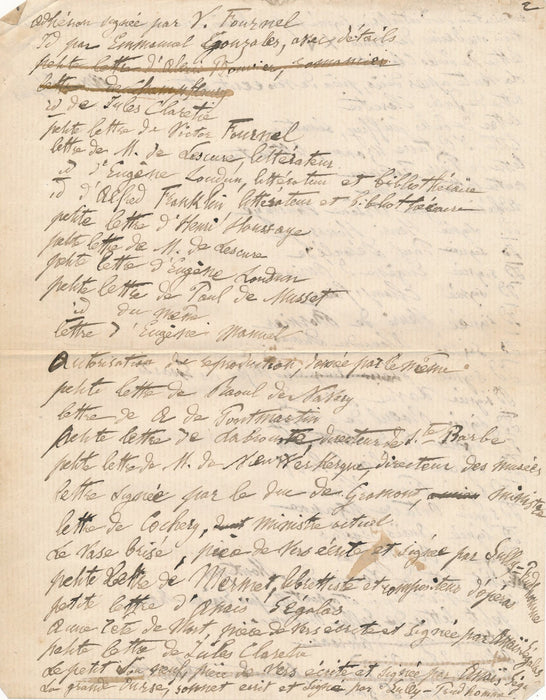 2
adhésion signée par V. Fournel
id par Emmanuel Gonzales, avec détails
petite lettre d'Alexis Bouvier, romancier
lettre de Champfleury
id de Jules Claretie
petite lettre de Victor Fournel
lettre de M. de Lescure, littérateur
id d'Eugène Loudun, littérateur et bibliothécaire
id d'Alfred Franklin, littérateur et bibliothécaire
petite lettre d'Henri Houssaye
petite lettre de M. de Lescure
petite lettre d'Eugène Loudun
petite lettre de Paul de Musset
id du même
lettre d'Eugène Manuel
Autorisation de reproduction, donnée par le même
petite lettre de Raoul de Navery
lettre de A de Pontmartin
petite lettre de Labrouste, directeur de Ste Barbe
petite lettre de M. de Nieuwerkerque, directeur des musées
lettre signée par le duc de Gramont, ministre
lettre de Cochery, ministre actuel
Le Vase brisé, pièce de vers écrite et signée par Sully-Prudhomme
petite lettre de Mermet, librettiste et compositeur d'opéras
petite lettre d'Anaïs Ségalas
A une tête de Mort, pièce de vers écrite et signée par Anaïs Ségalas
petite lettre de Jules Claretie
Le petit Sou neuf, pièce de vers écrite et signée par Anaïs Ség.
La grande Ourse, sonnet écrit et signé par Sully Prudhomme